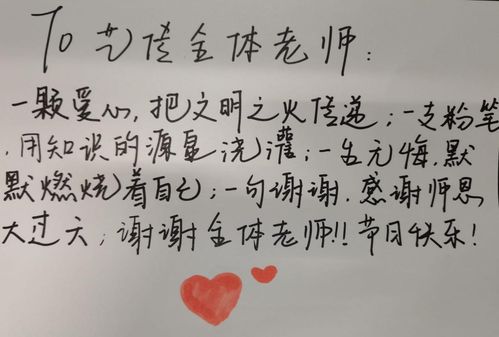 To艺信全体老师：
一颗爱心，把文明之火传递；一支粉笔
，用知识的源泉浇灌；一生无悔，默
默燃烧着自己；一句谢谢，感谢师恩
大过天；谢谢全体老师!!节日快乐！